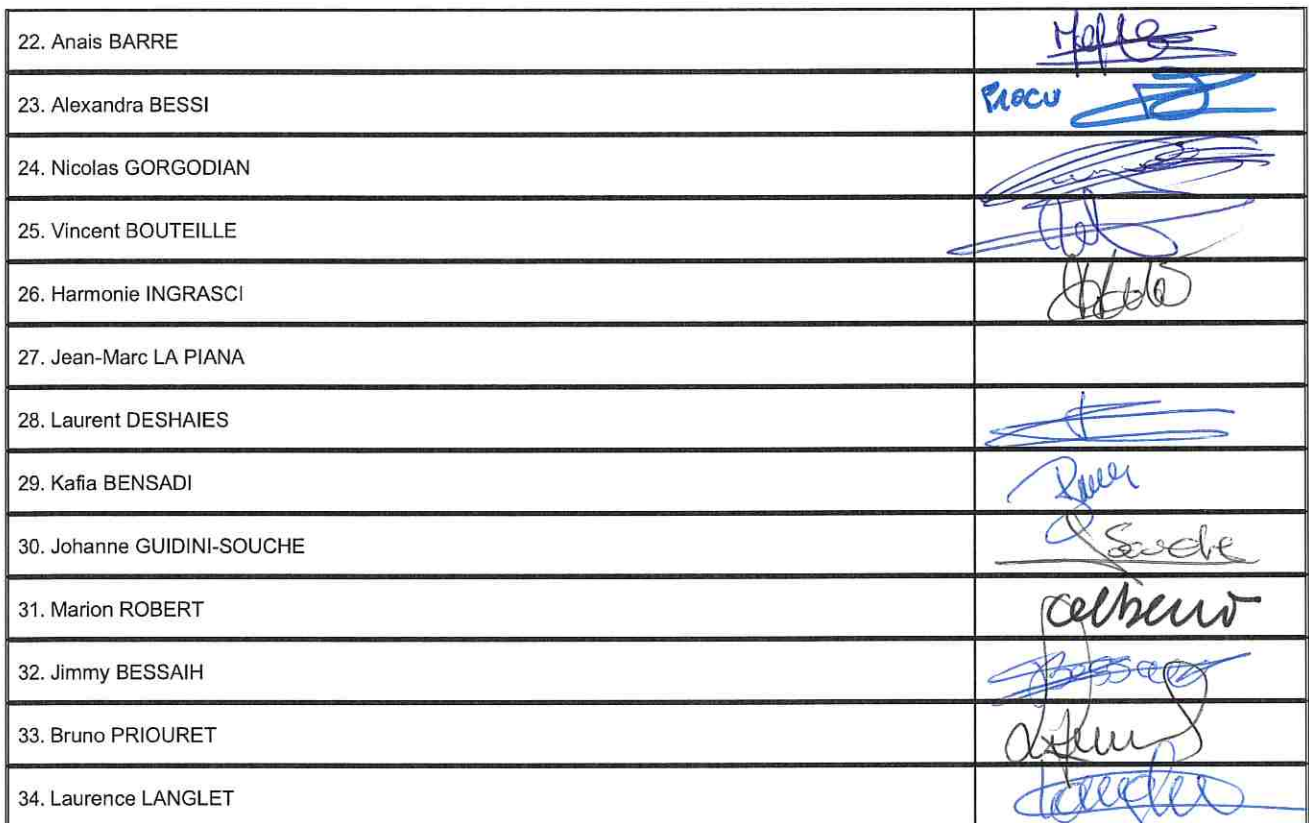 22. Anais BARRE
23. Alexandra BESSI PROCU
24. Nicolas GORGODIAN
25. Vincent BOUTEILLE
26. Harmonie INGRASCI
27. Jean-Marc LA PIANA
28. Laurent DESHAIES
29. Kafia BENSADI
30. Johanne GUIDINI-SOUCHE Souche
31. Marion ROBERT
32. Jimmy BESSAIH
33. Bruno PRIOURET
34. Laurence LANGLET